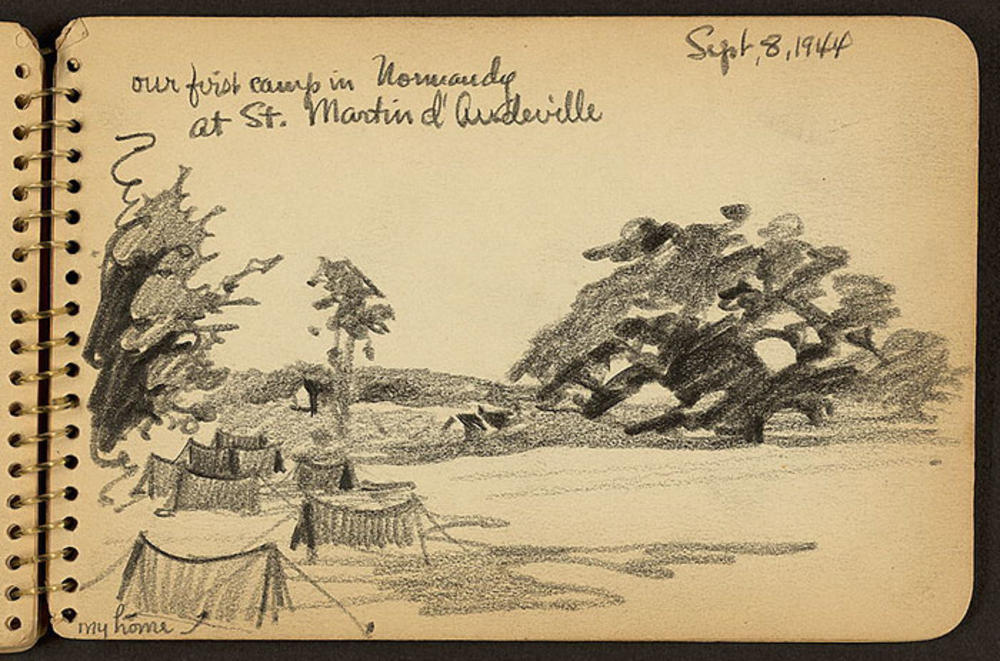 Sept, 8, 1944
our first camp in Normandy
at St. Martin d'Audeville
my home